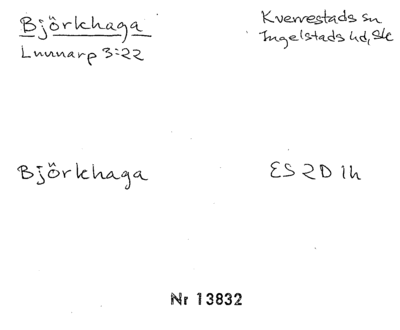 Björkhaga
Lunnarp 3:22
Kverrestads sn
Ingelstads hd, Skr
Björkhaga
ES 2D 1h
Nr 13832